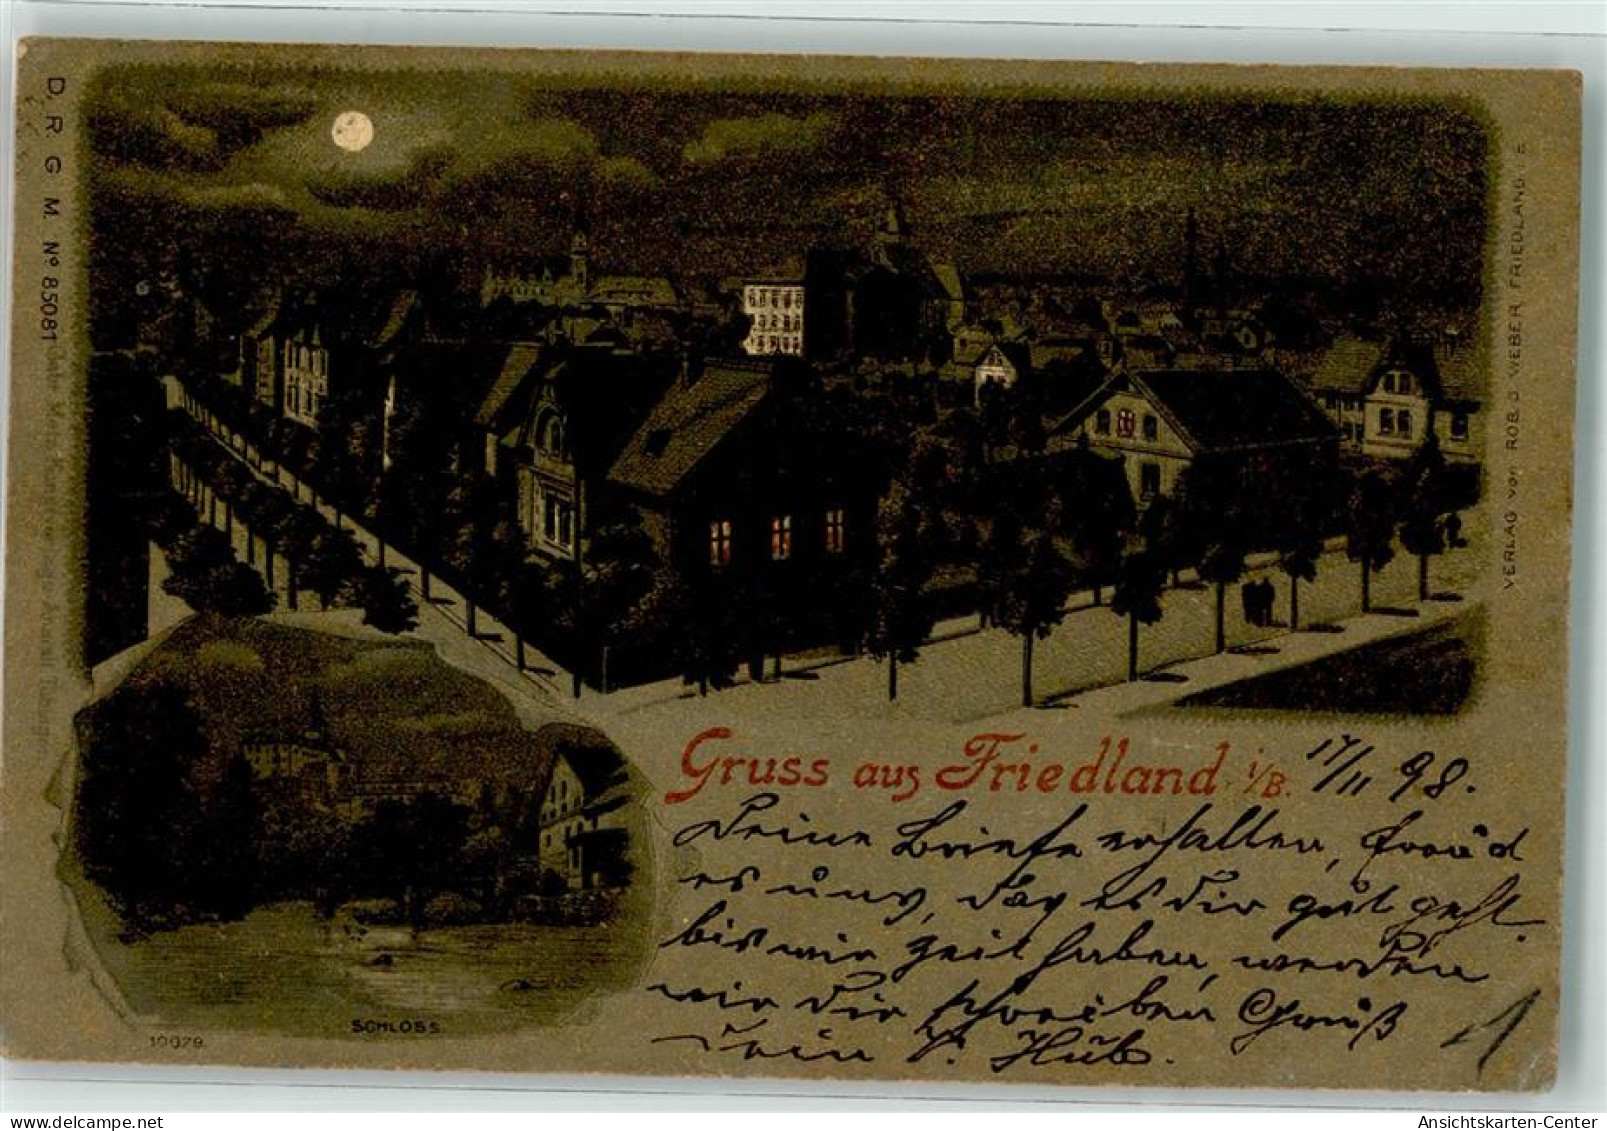 D. R. G. M. Nº 85081
Gruss aus Friedland i/B. 17/11 98.
Deine Briefe erhalten, freud
es uns, das es dir gut geht.
bis wir Zeit haben, werden
wir dir schreiben Gruß
dein V. Hüb.
1
SCHLOSS
10079.
VERLAG von ROB. J. WEBER, FRIEDLAND i. B.
Ansichtskarten-Center